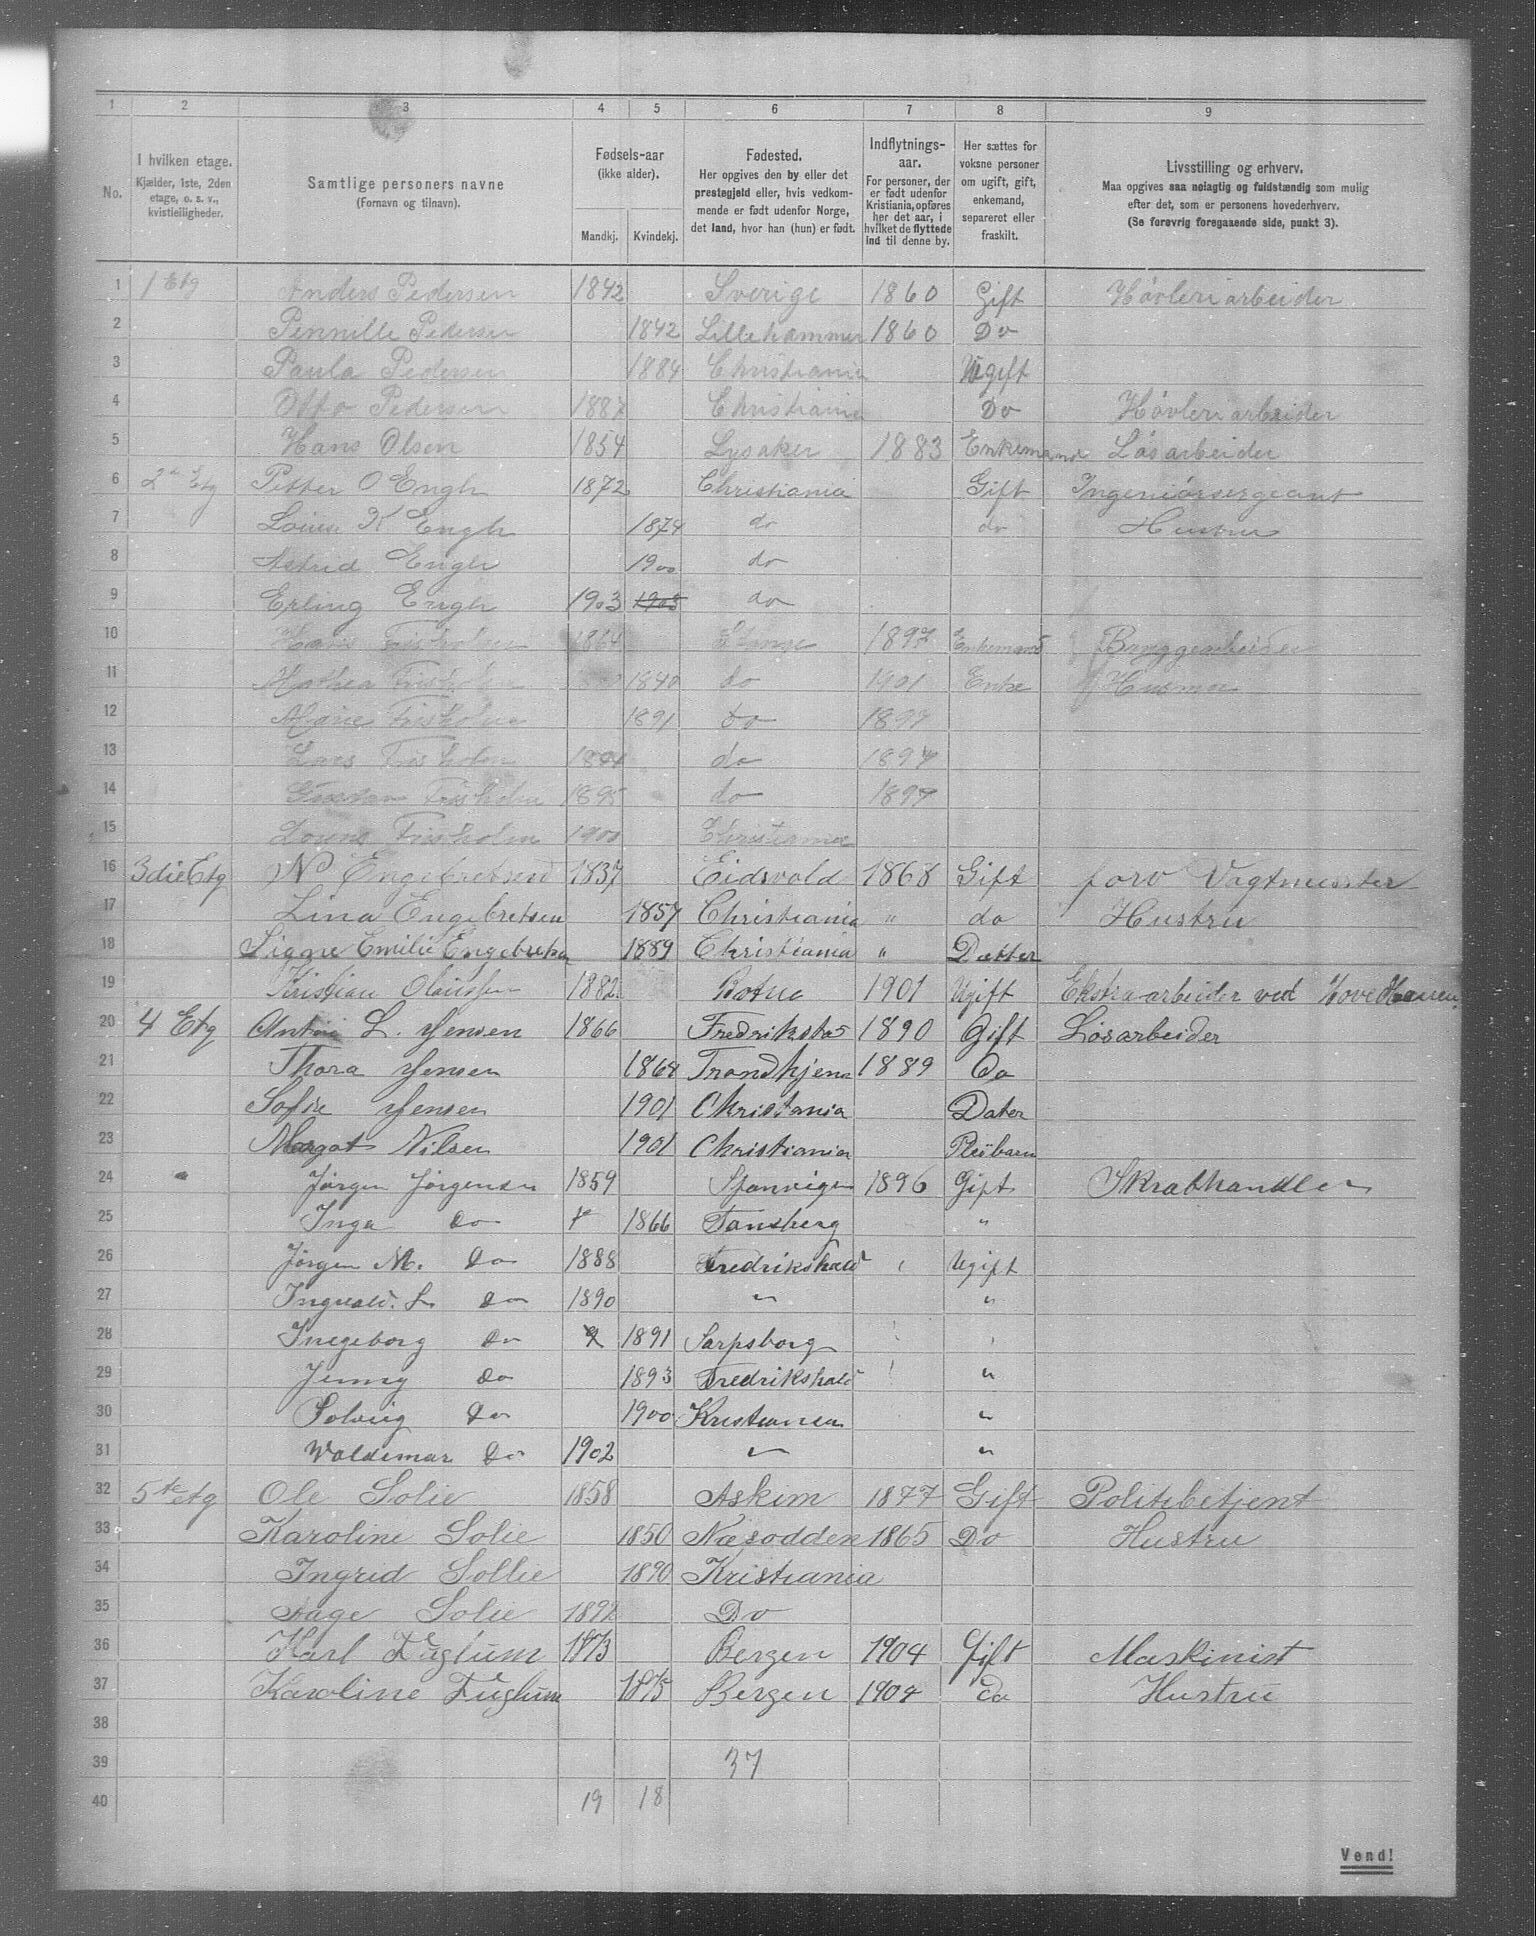 1 2 3 4 5 6 7 8 9
No. I hvilken etage. Kjælder, 1ste, 2den etage, o. s. v., kvistleiligheder. Samtlige personers navne (Fornavn og tilnavn). Fødsels-aar (ikke alder). Mandkj. Kvindekj. Fødested. Her opgives den by eller det prestegjeld eller, hvis vedkommende er født udenfor Norge, det land, hvor han (hun) er født. Indflytnings-aar. For personer, der er født udenfor Kristiania, opføres her det aar, i hvilket de flyttede ind til denne by. Her sættes for voksne personer om ugift, gift, enkemand, separeret eller fraskilt. Livsstilling og erhverv. Maa opgives saa nøiagtig og fuldstændig som mulig efter det, som er personens hovederhverv. (Se forøvrig foregaaende side, punkt 3).
1 1 Etg Anders Pedersen 1842 Sverige 1860 Gift Høvleriarbeider
2 Pernille Pedersen 1842 Lillehammer 1860 Do
3 Paula Pedersen 1884 Christiania Ugift
4 Otto Pedersen 1887 Christiania Do Høvleriarbeider
5 Hans Olsen 1854 Lysaker 1883 Enkemand Løsarbeider
6 2n Etg Petter O Engh 1872 Christiania Gift Ingeniørsergeant
7 Louise K Engh 1874 do do Hustru
8 Astrid Engh 1900 do
9 Erling Engh 1903 1903 do
10 Hans Frisholm 1864 Stange 1897 Enkemand Bryggearbeider
11 Mathea Frisholm 1840 do 1901 Enke Husmor
12 Marie Frisholm 1891 do 1897
13 Lars Frisholm 1894 do 1897
14 Frisholm 1895 do 1897
15 Frisholm 1900 Christiania
16 3die Etg N Engebretsen 1837 Eidsvold 1868 Gift forv Vagtmester
17 Lina Engebretsen 1857 Christiania " do Hustru
18 Signe Emilie Engebretsen 1889 Christiania " Datter
19 Kristian Olaussen 1882 Botne 1901 Ugift Ekstraarbeider ved Hovedbanen
20 4 Etg Anton L. Jensen 1866 Fredrikstad 1890 Gift Løsarbeider
21 Thora Jensen 1864 Trondhjem 1889 Do
22 Sofie Jensen 1901 Christania Dater
23 Margot Nilsen 1901 Christiania Pleibarn
24 Jørgen Jørgensen 1859 1896 Gift Skrabhandler
25 Inga Do 1866 Tønsberg "
26 Jørgen M. Do 1888 Fredrikshald Ugift
27 Ingvald. L Do 1890 " "
28 Inegeborg Do 1891 Sarpsborg
29 Jenny Do 1893 Fredrikshald "
30 Solveig Do 1900 Kristiania "
31 Waldemar Do 1902 " "
32 5te etg Ole Solie 1858 Askim 1877 Gift Politibetjent
33 Karoline Solie 1850 Næsodden 1865 Do Hustru
34 Ingrid Sollie 1890 Kristiania
35 Aage Solie 1892 Do
36 Karl Fuglum 1873 Bergen 1904 Gift Maskinist
37 Karoline Fuglum 1875 Bergen 1904 do Hustru
38
39 37
40 19 18
Vend!